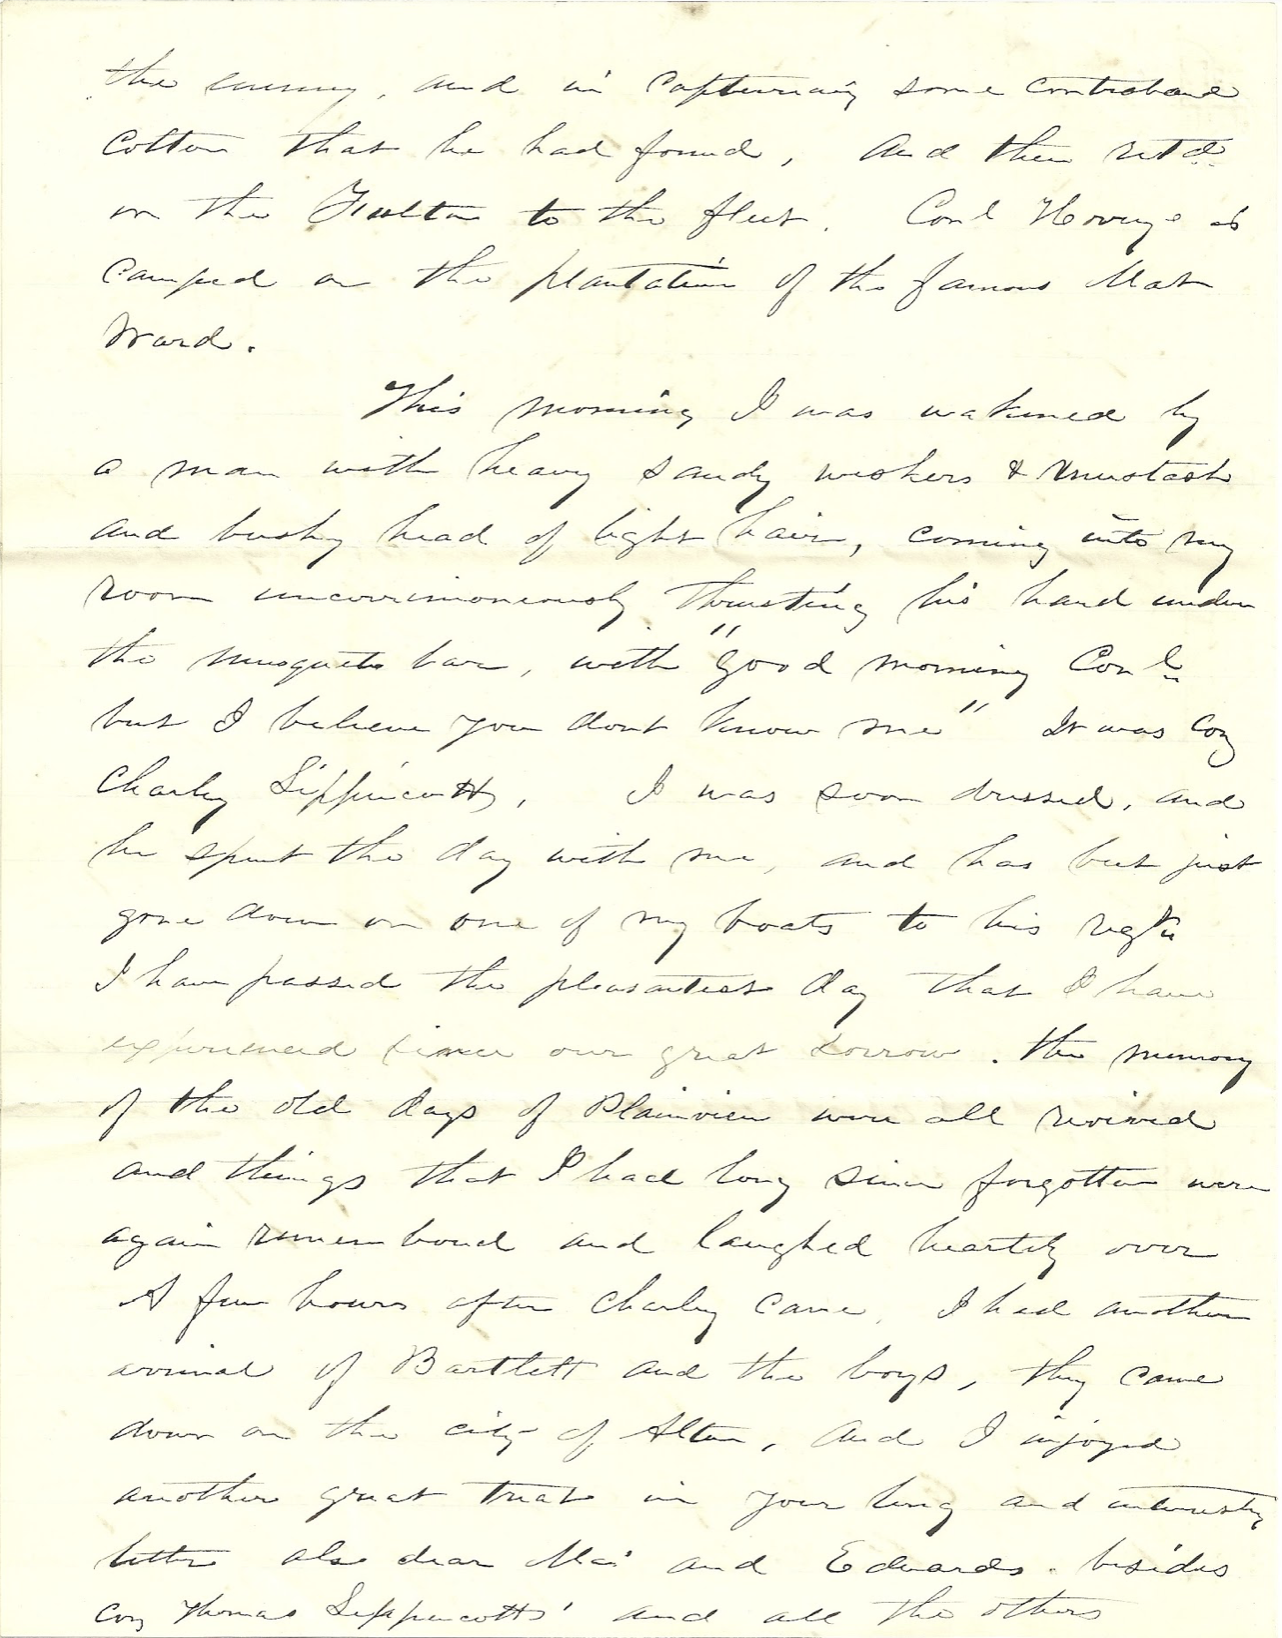 the enemy, and in capturing some contraband
Cotton that he had found, and then retd
on the Fulton to the fleet. Conl Hovey is
Camped on the plantation of the famous Mat
Ward.
This morning I was wakened by
a man with heavy sandy wiskers & mustash
and bushy head of light hair, coming into my
room unceremoneously thrusting his hand under
the musquito bar, with "good morning Conl
but I believe you dont know me" It was Coz
Charley Lippincott, I was soon dressed, and
he spent the day with me, and has but just
gone down on one of my boats to his regt
I have passed the pleasantest day that I have
experienced since our great sorrow. the memory
of the old days of Plainview were all revived
and things that I had long since forgotten were
again remembered and laughed heartily over
A few hours after Charley came, I had another
arrival of Bartlett and the boys, they came
down on the city of Alton, and I injoyed
another great treat in your long and interesting
letter also dear Ma's and Edwards. besides
Coz Thomas Lippincotts' and all the others